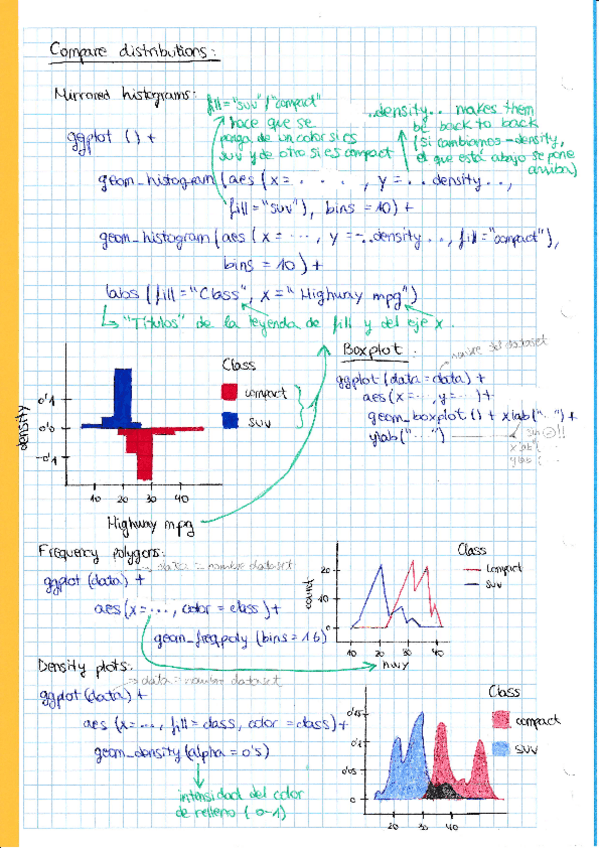 Compare distributions:
Mirrored histograms:
fill = "suv" / "compact"
hace que se
ponga de un color si es
suv y de otro si es compact
..density.. makes them
be back to back
(si cambiamos -density,
el que está abajo se pone
arriba)
ggplot () +
geom_histogram (aes (x = ...., y = ..density..,
fill = "suv"), bins = 10) +
geom_histogram (aes (x = ..., y = -..density.., fill = "compact"),
bins = 10) +
labs (fill = "Class", x = "Highway mpg")
"Títulos" de la leyenda de fill y del eje x.
Class
compact
suv
0'1
0'0
-0'1
density
10 20 30 40
Highway mpg
Boxplot:
nombre del dataset
ggplot (data = data) +
aes (x = ..., y = ...) +
geom_boxplot () + xlab ("...") +
ylab ("...")
sin
xlab (
ylab (
Frequency polygons:
data = nombre dataset
ggplot (data) +
aes (x = ..., color = class) +
geom_freqpoly (bins = 16)
Class
compact
suv
count
20
10
0
10 20 30 40
hwy
Density plots:
data = nombre dataset
ggplot (data) +
aes (x = ..., fill = class, color = class) +
geom_density (alpha = 0's)
intensidad del color
de relleno (0-1)
Class
compact
suv
0'15
0'1
0'05
0
20 30 40